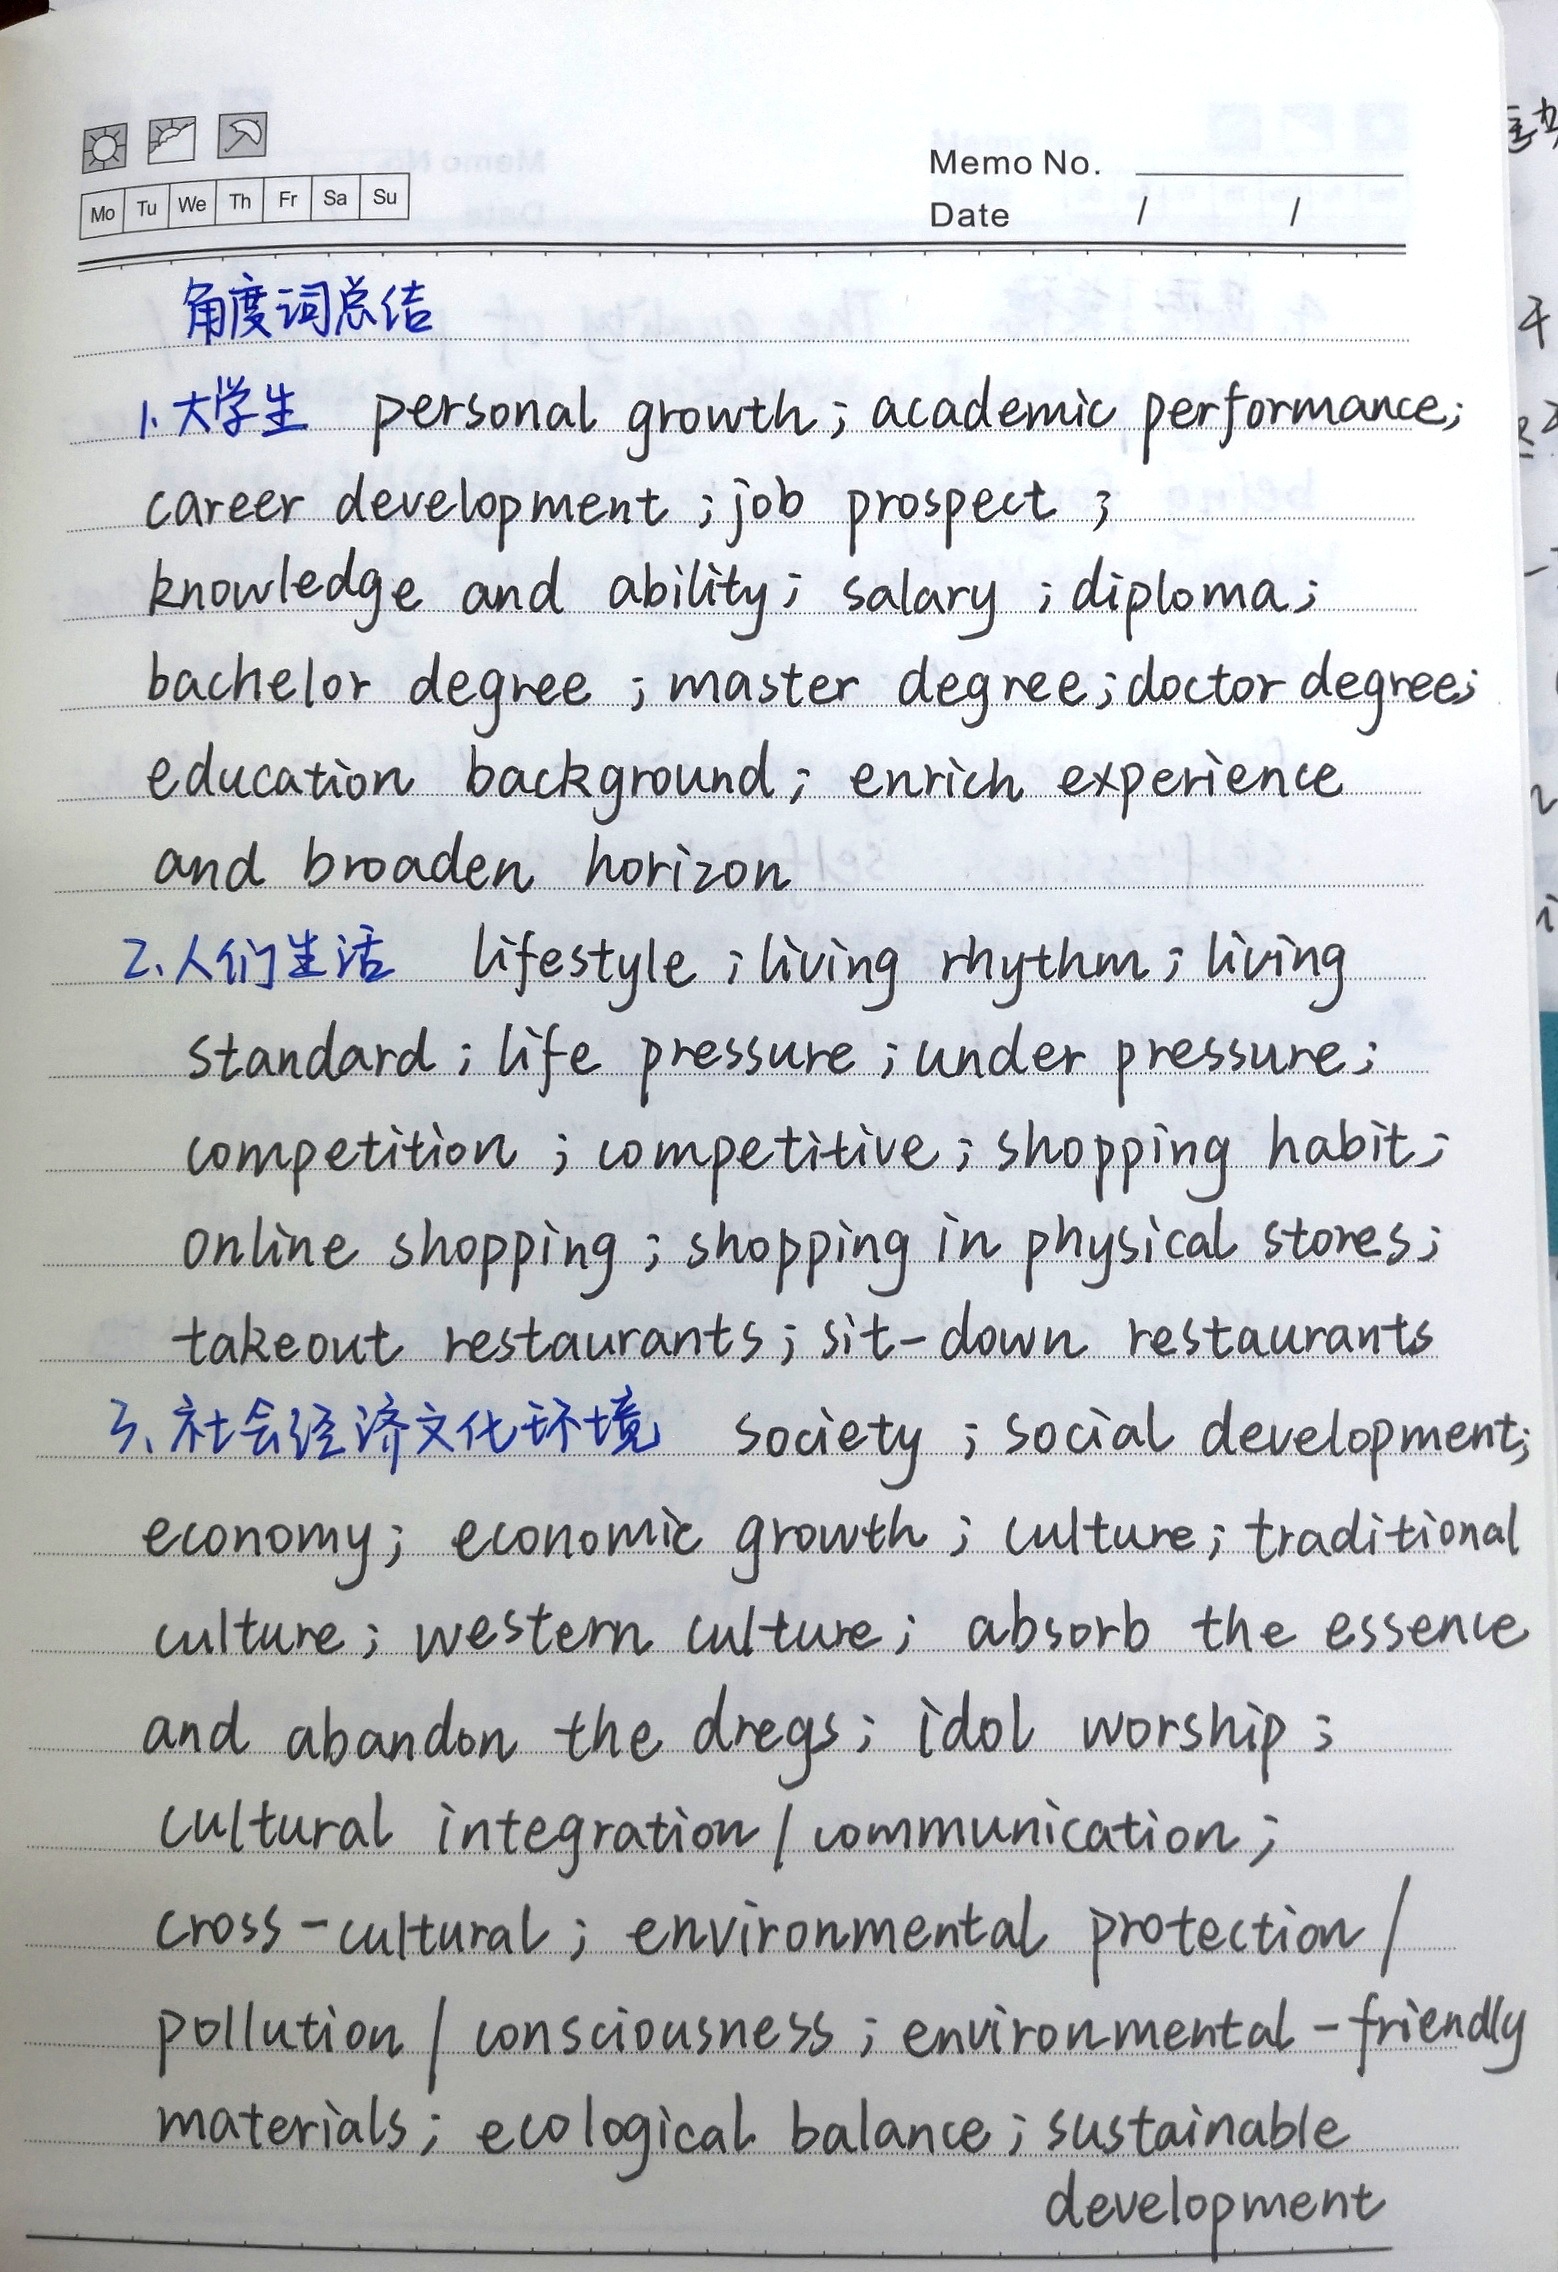 Memo No.
Mo Tu We Th Fr Sa Su
Date / /
角度词总结
1. 大学生 personal growth; academic performance;
career development; job prospect;
knowledge and ability; salary; diploma;
bachelor degree; master degree; doctor degree;
education background; enrich experience
and broaden horizon
2. 人们生活 lifestyle; living rhythm; living
standard; life pressure; under pressure;
competition; competitive; shopping habit;
online shopping; shopping in physical stores;
takeout restaurants; sit-down restaurants
3. 社会经济文化环境 society; social development;
economy; economic growth; culture; traditional
culture; western culture; absorb the essence
and abandon the dregs; idol worship;
cultural integration / communication;
cross-cultural; environmental protection /
pollution / consciousness; environmental-friendly
materials; ecological balance; sustainable
development